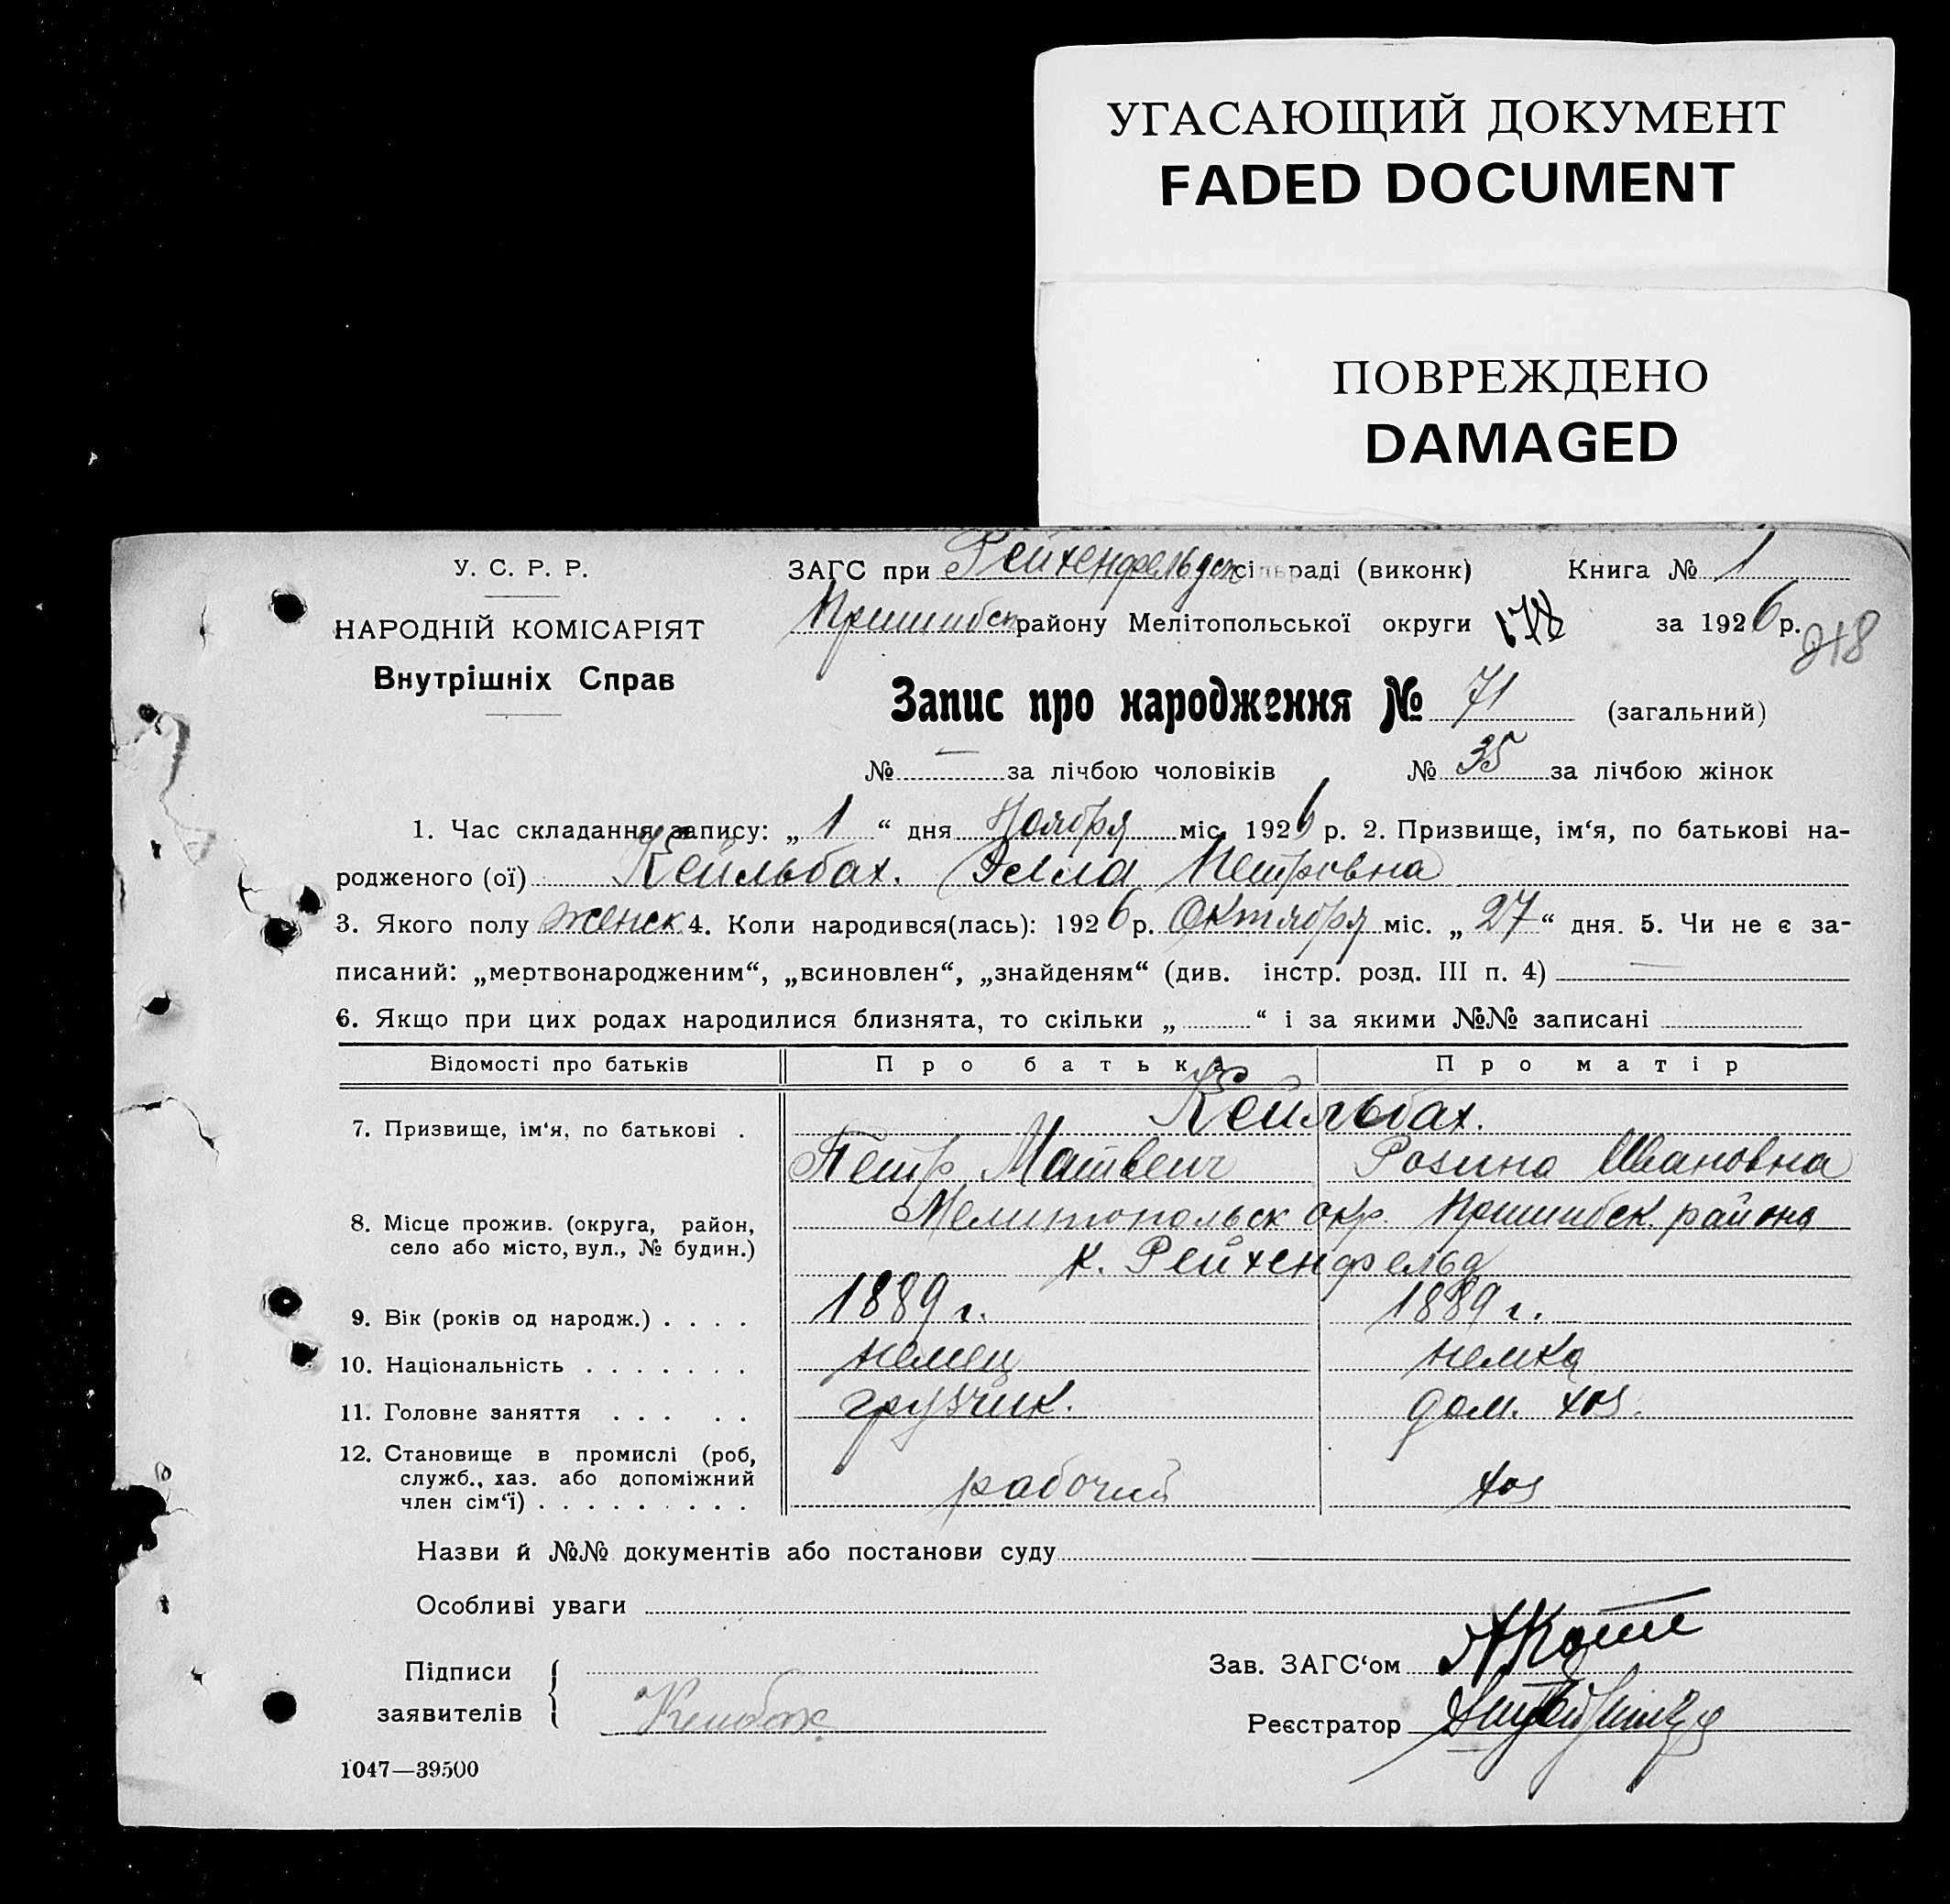 УГАСАЮЩИЙ ДОКУМЕНТ
FADED DOCUMENT
ПОВРЕЖДЕНО
DAMAGED
У. С. Р. Р.
НАРОДНІЙ КОМІСАРІЯТ
Внутрішніх Справ
ЗАГС при Рейхенфельдск сільраді (виконк) Книга № 1
Пришибск району Мелітопольської округи за 1926 р.
218
Запис про народження № 71 (загальний)
№ — за лічбою чоловіків № 35 за лічбою жінок
1. Час складання запису: „1“ дня Ноября міс. 1926 р. 2. Призвище, ім‘я, по батькові на-
родженого (ої) Кейльбах. Элла Петровна
3. Якого полу женск 4. Коли народився(лась): 1926 р. Октября міс. „27“ дня. 5. Чи не є за-
писаний: „мертвонародженим“, „всиновлен“, „знайденям“ (див. інстр. розд. III п. 4) —
6. Якщо при цих родах народилися близнята, то скільки „ “ і за якими №№ записані
Відомості про батьків Про батька Про матір
Кейльбах.
7. Призвище, ім‘я, по батькові .
Петр Матвеич Розина Ивановна
8. Місце прожив. (округа, район, Мелитопольск окр. Пришибск. района
село або місто, вул., № будин.)
к. Рейхенфельд
9. Вік (років од народж.) . . . . 1889 г. 1889 г.
10. Національність . . . . . . . немец немка
11. Головне заняття . . . . . грузчик. дом. хоз.
12. Становище в промислі (роб,
служб., хаз. або допоміжний
член сім‘ї) . . . . . . . . . рабочий хоз
Назви й №№ документів або постанови суду
Особливі уваги
Підписи
заявителів
Зав. ЗАГС‘ом
Реєстратор
1047—39500